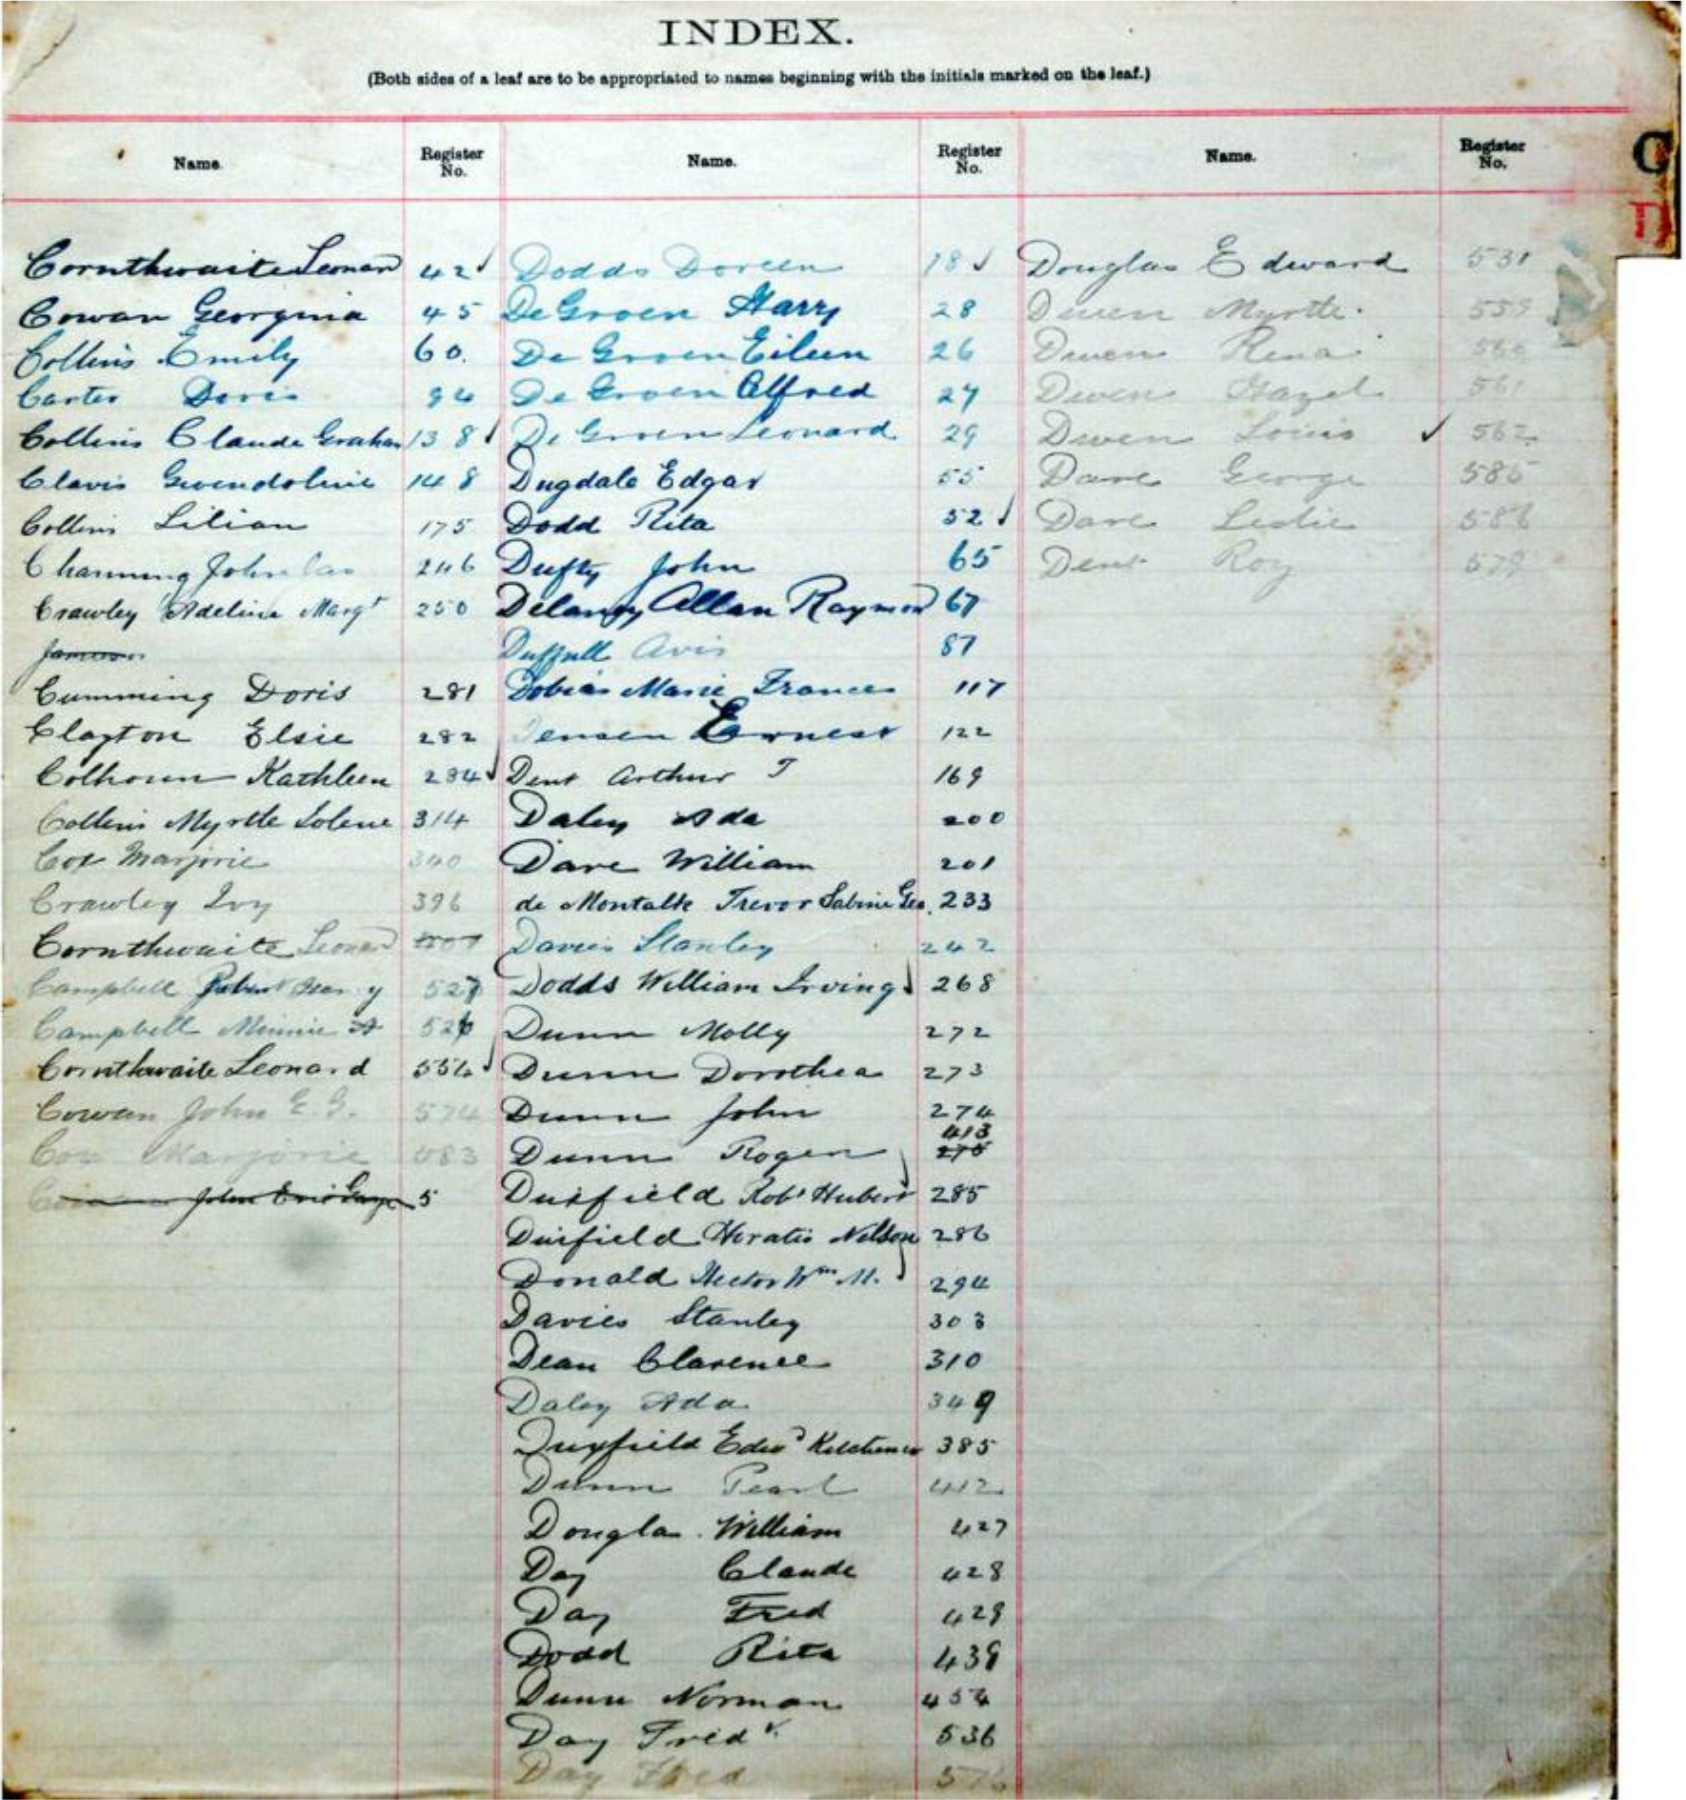 INDEX.
(Both sides of a leaf are to be appropriated to names beginning with the initials marked on the leaf.)
C
D
Name. Register No.
Cornthwaite Leonard 42
Cowan Georgina 45
Collins Emily 60.
Carter Doris 94
Collins Claude Graham 138
Clavis Gwendoline 148
Collins Lilian 175
Channing John 246
Crawley Adeline Margt 250
Cumming Doris 281
Clayton Elsie 282
Colhoun Kathleen 284
Collins Myrtle 314
Cox Marjorie 340
Crawley Ivy 396
Cornthwaite Leonard
Campbell 527
Campbell Minnie A 526
Cornthwaite Leonard 554
Cowan John E. G. 574
Cox Marjorie 583
John Eric 5
Name. Register No.
Dodds Doreen 18
De Groen Harry 28
De Groen Eileen 26
De Groen Alfred 27
De Groen Leonard 29
Dugdale Edgar 55
Dodd Rita 52
Dufty John 65
Delaney Allan Raymond 67
Duffell Avis 87
Dobias Marie Frances 117
Jensen Ernest 122
Dent Arthur J 169
Daley Ada 200
Dare William 201
de Montalk Trevor Sabine Geo. 233
Davies Stanley 242
Dodds William Irving 268
Dunn Molly 272
Dunn Dorothea 273
Dunn John 274
413
Dunn Roger 275
Duxfield Robt Hubert 285
Duxfield Horatio Nelson 286
Donald Hector Wm M. 294
Davies Stanley 303
Dean Clarence 310
Daley Ada 349
Duxfield Edwd Kitchener 385
Dunn Pearl 412
Dougla William 427
Day Claude 428
Day Fred 429
Dodd Rita 439
Dunn Norman 454
Day Fredk 536
Day Fred
Name. Register No.
Douglas Edward 531
Dwen Myrtle. 559
Dwen Rena 560
Dwen Hazel 561
Dwen Louis 562
Dare George 585
Dare Leslie 586
Dent Roy 579